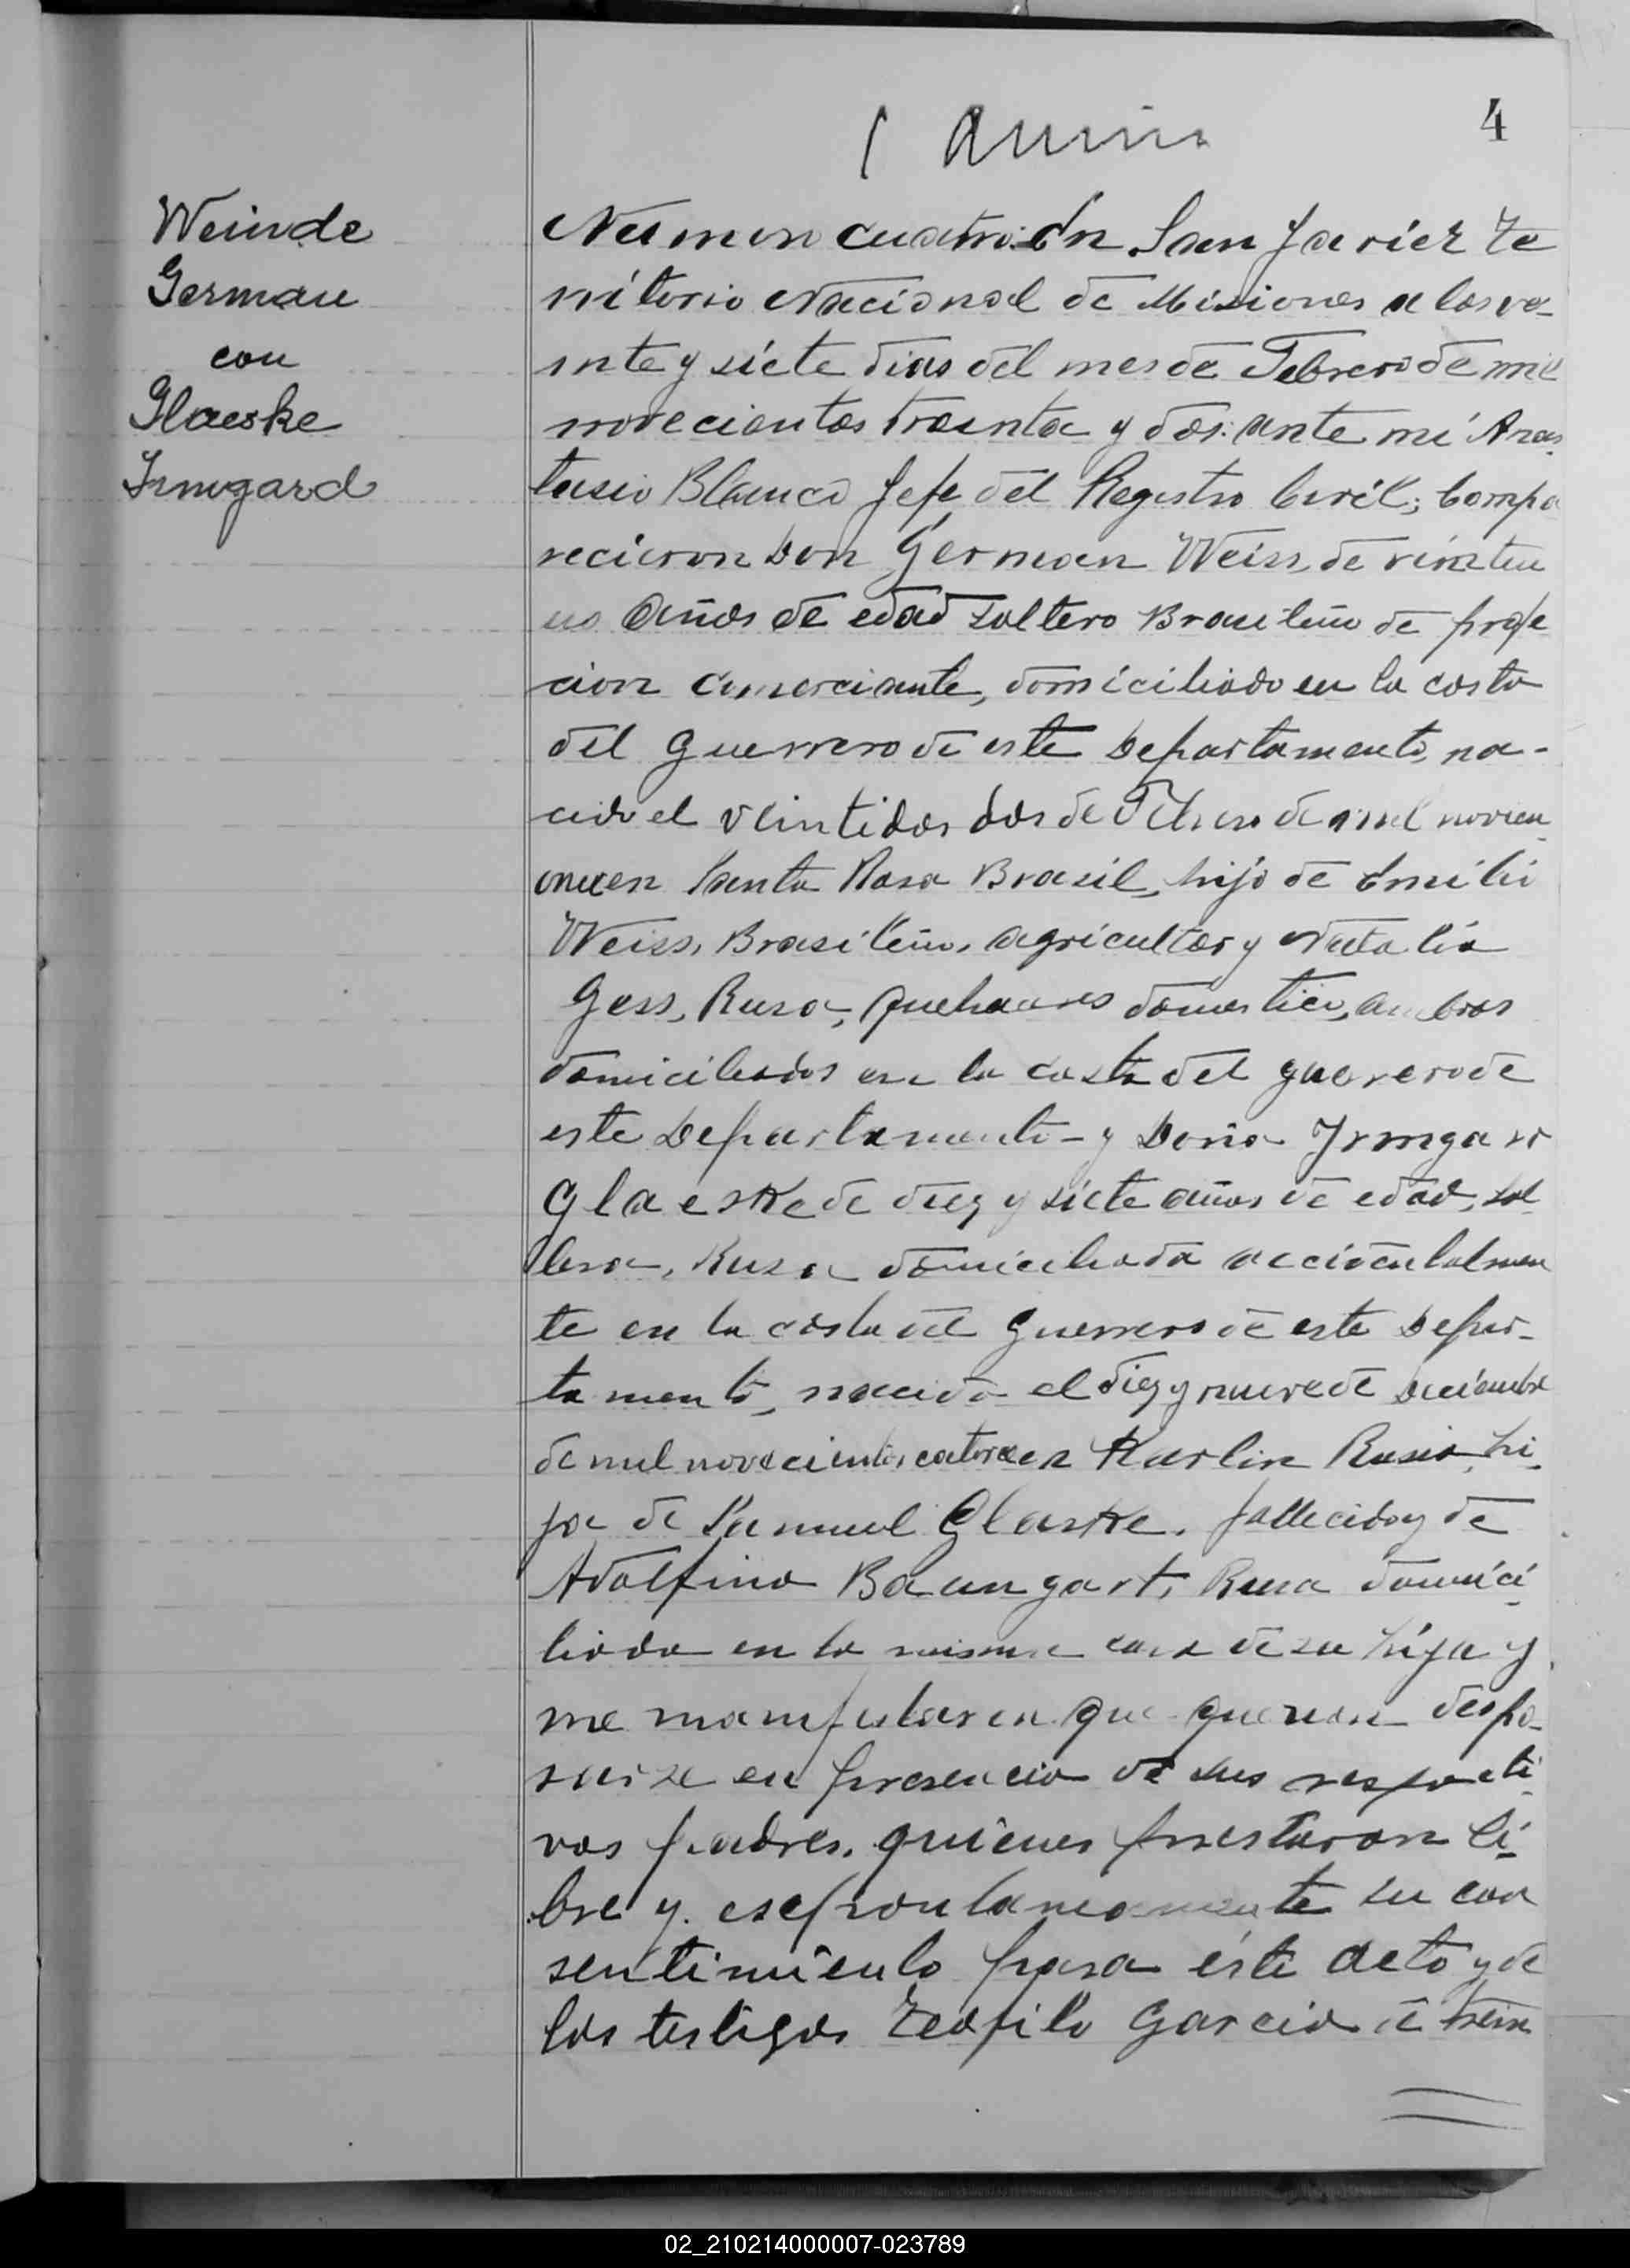 4
Weinde
German
con
Glaeske
Irmgard
Numero cuatro: En San Javier Te
rritorio Nacional de Misiones a los ve-
inte y siete dias del mes de Febrero de mil
novecientos treinta y dos: ante mi Anas
tasio Blanco Jefe del Registro Civil; Compa
recieron Don German Weiss, de veintiu
no años de edad soltero Brasileño de profe
cion comerciante, domiciliado en la costa
del Guerrero de este Departamento, na-
cido el veintidos dos de Febrero de mil novecien
once en Santa Rosa Brasil, hijo de Emilio
Weiss, Brasileño, agricultor y Natalia
Gess, Rusa, quehaceres domestico, ambos
domiciliados en la costa del guerrero de
este Departamento - y Doña Irmgard
Glaeske de diez y siete años de edad, sol
tera, Rusa domiciliada accidentalmen
te en la costa del Guerrero de este Depar-
tamento, nacida el diez y nueve de Diciembre
de mil novecientos catorce en Karlin Rusia, hi
ja de Samuel Glaske, fallecido y de
Adolfina Baungart, Rusa domici
liada en la misma casa de su hija y
me manifestaron que querian despo-
sarse en presencia de sus respecti
vos padres, quienes prestaron li
bre y espontaneamente su con
sentimiento para éste acto y de
los testigos Teofilo Garcia de trein
02_210214000007-023789